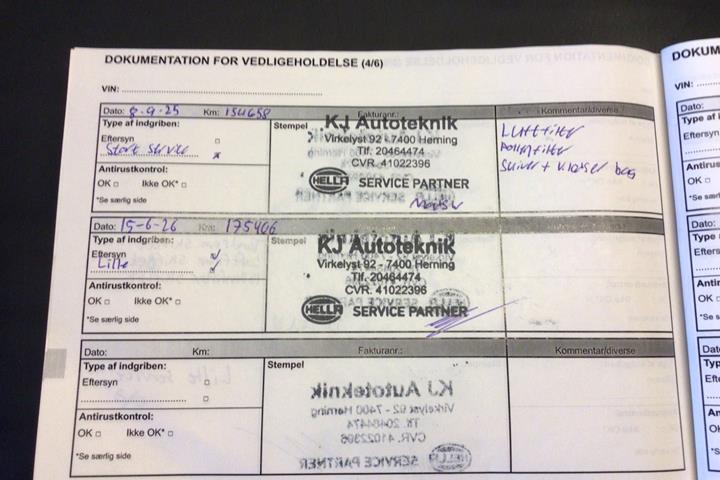 DOKUMENTATION FOR VEDLIGEHOLDELSE (4/6)
DOKUM
VIN:
VIN:
Dato: 8-9-25 Km: 154658 Fakturanr.: Kommentar/diverse
Type af indgriben:
Eftersyn
Store service
Antirustkontrol:
OK Ikke OK*
*Se særlig side
Stempel
KJ Autoteknik
Virkelyst 92 - 7400 Herning
Tlf. 20464474
CVR. 41022396
HELLA SERVICE PARTNER
Luftfilter
Pollenfilter
Skiver + klodser bag
Dato: 15-6-26 Km: 175406
Type af indgriben:
Eftersyn
Lille
Antirustkontrol:
OK Ikke OK*
*Se særlig side
Stempel
KJ Autoteknik
Virkelyst 92 - 7400 Herning
Tlf. 20464474
CVR. 41022396
HELLA SERVICE PARTNER
Dato: Km: Fakturanr.: Kommentar/diverse
Type af indgriben:
Eftersyn
Antirustkontrol:
OK Ikke OK*
*Se særlig side
Stempel
KJ Autoteknik
Virkelyst 92 - 7400 Herning
Tlf. 20464474
CVR. 41022396
SERVICE PARTNER
Dato:
Type af in
Eftersyn
Antirust
OK
*Se særl